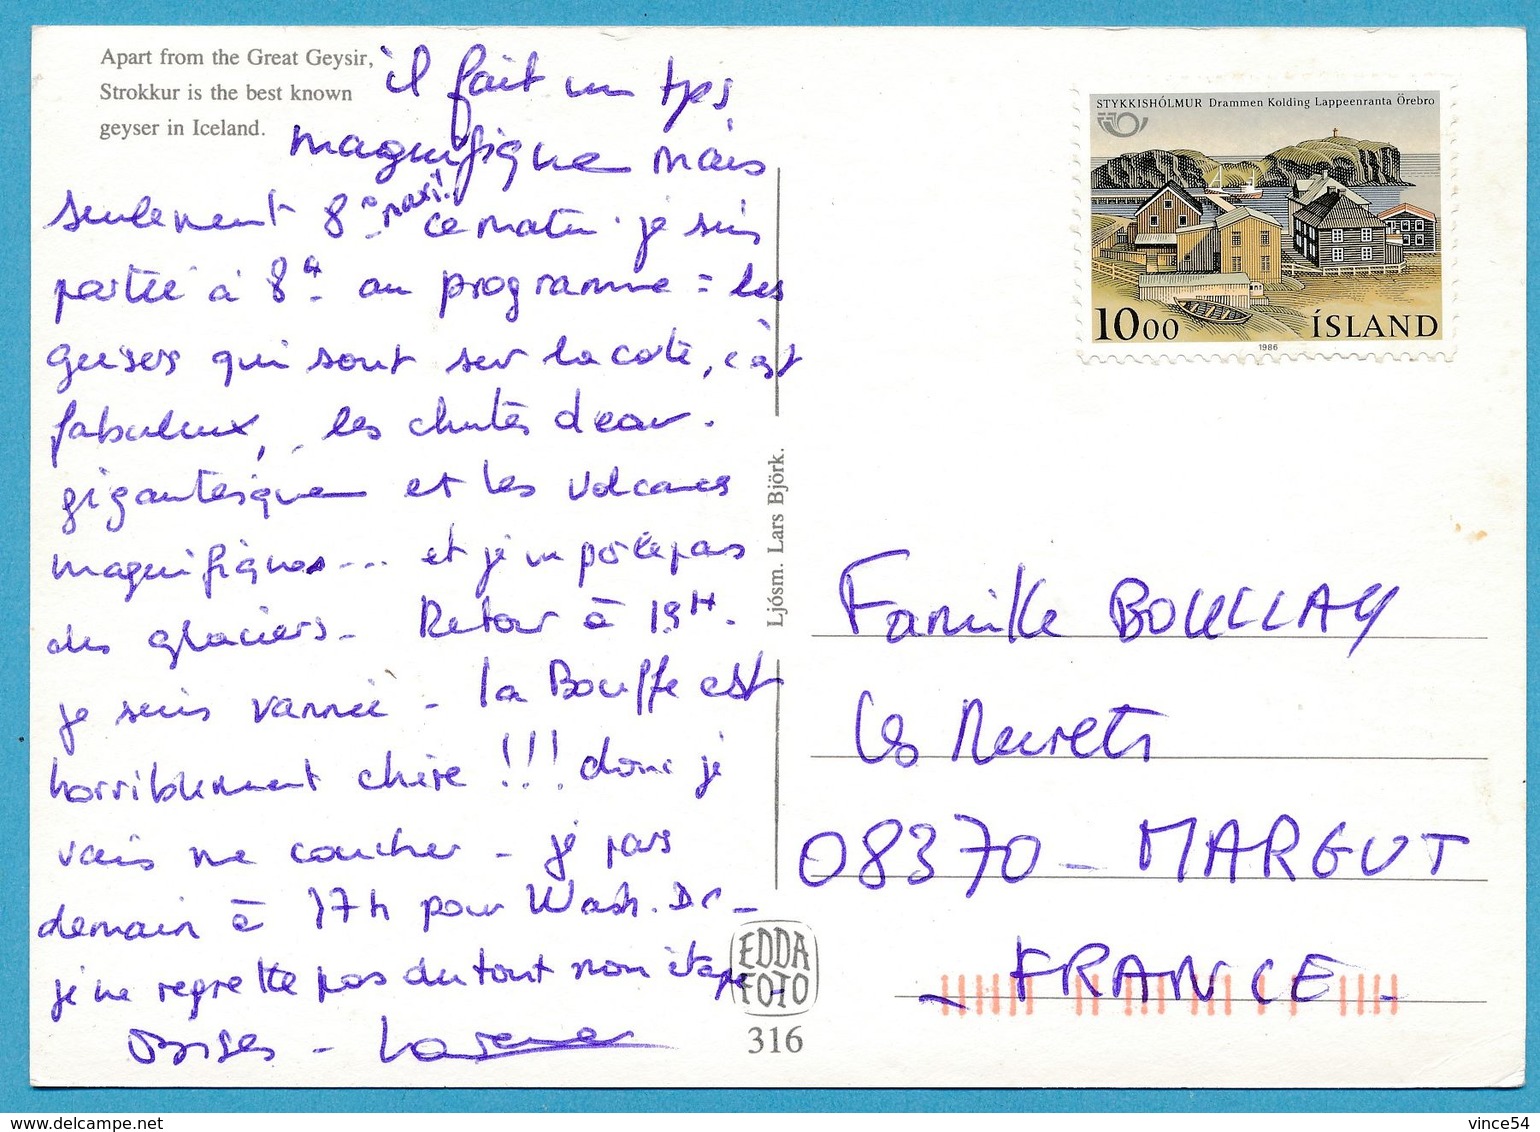 Apart from the Great Geysir,
Strokkur is the best known
geyser in Iceland.
il fait un tps
magnifique mais
seulement 8° maxi! ce matin. je suis
partie à 8h au programme = les
Geisers qui sont sur la coté, c'est
fabuleux, les chutes d'eau.
gigantesques et les volcans
magnifiques... et je ne parle pas
des glaciers - Retour à 19H.
je suis vannée - la Bouffe est
horriblement chère !!! donc je
vais me coucher - je pars
demain à 17h pour Wash. DC -
je ne regrette pas du tout mon étape -
Bises -
Ljósm. Lars Björk.
EDDA
FOTO
316
STYKKISHÓLMUR Drammen Kolding Lappeenranta Örebro
1000 ÍSLAND
1986
Famille BOULLAY
Les Murets
08370 - MARGUT
- FRANCE -
https://www.delcampe.net
vince54